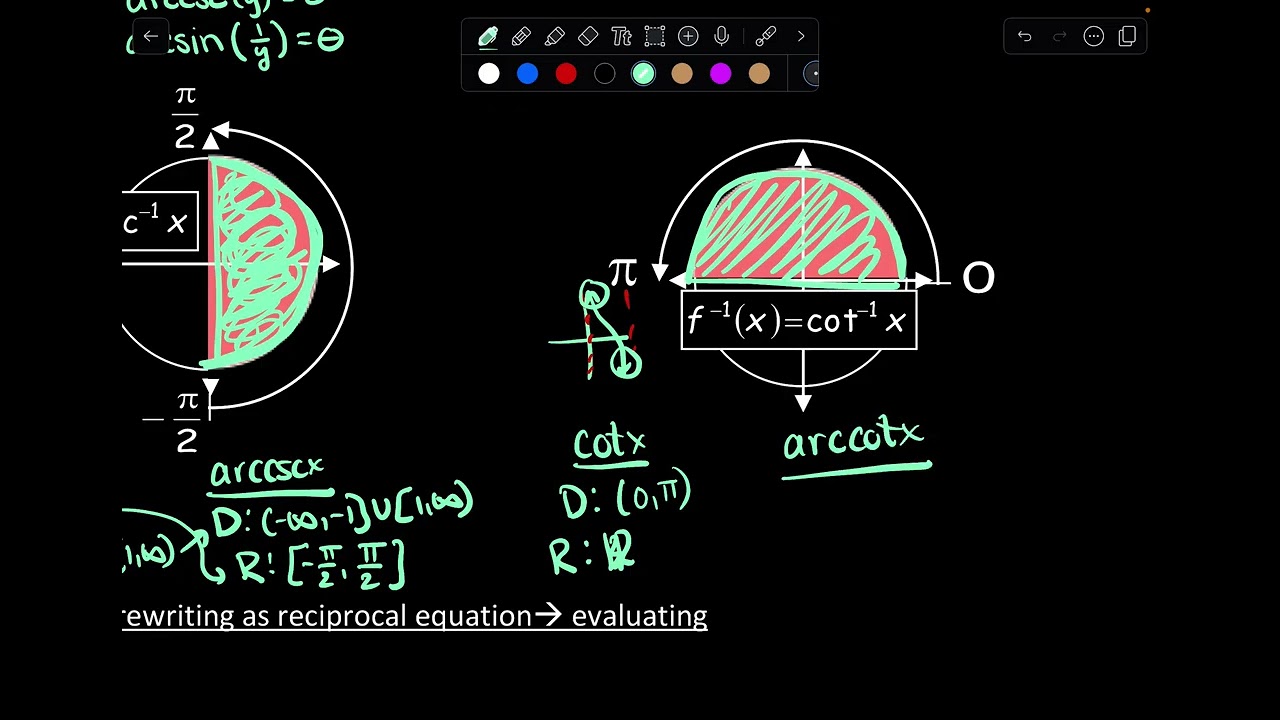 arccsc(y)=θ
arcsin(1/y)=θ
Tt
π/2
c⁻¹ x
-π/2
arccscx
D: (-∞,-1]∪[1,∞)
R: [-π/2, π/2]
1,∞)
π
0
f⁻¹(x)=cot⁻¹ x
cotx
D: (0,π)
R: ℝ
arccotx
rewriting as reciprocal equation→ evaluating